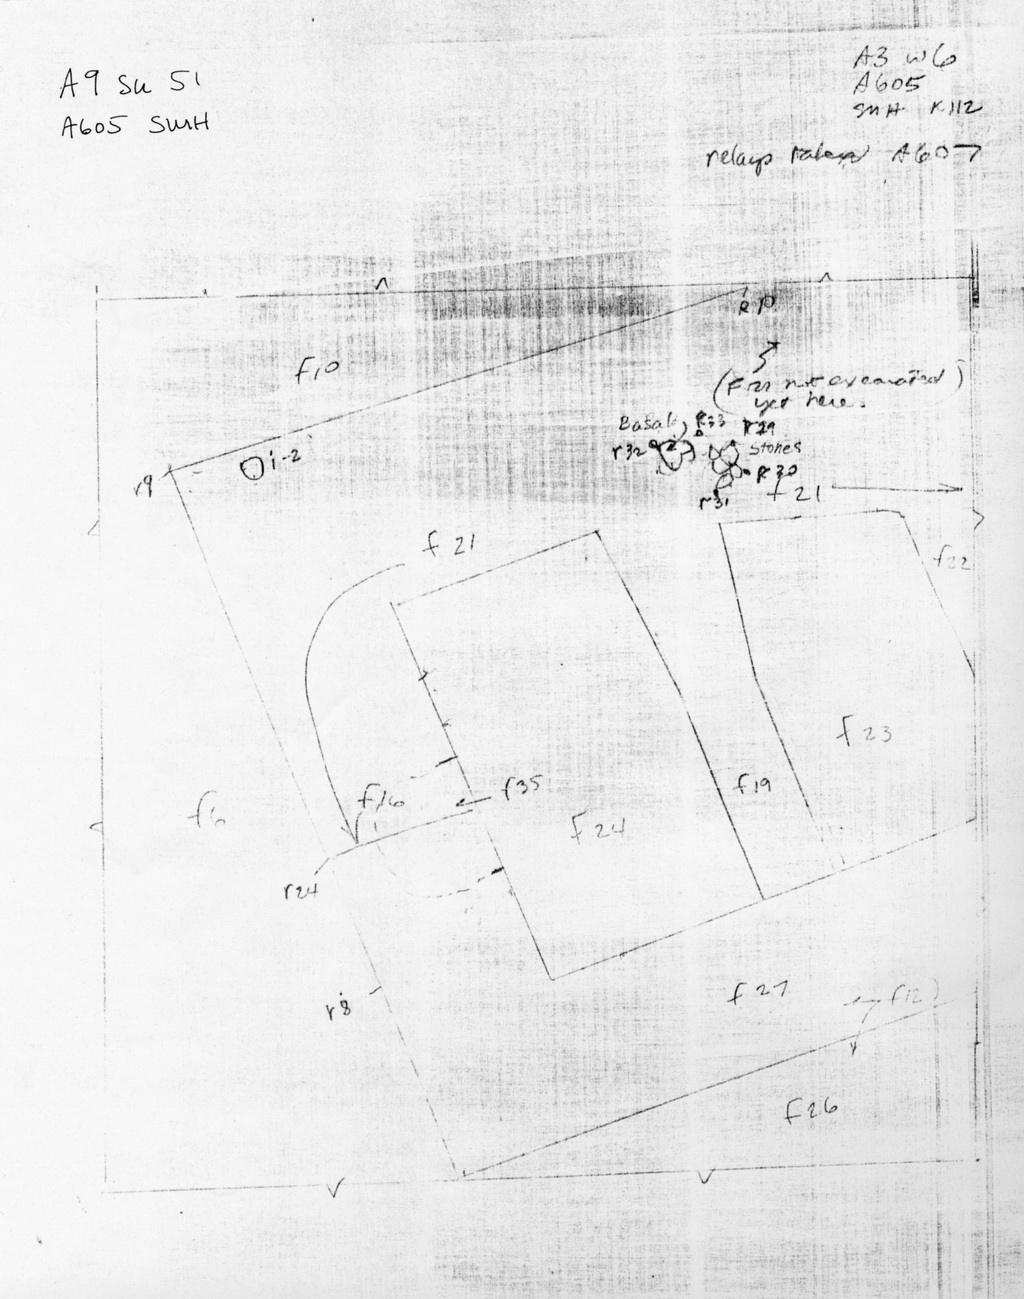 A9 Su 51
A605 SWH
A3 w6
A605
SWH K112
relays A607
f10
(F not excavated
yet here.)
Basalt
r33
r29
r32
Stones
r30
r31
i-2
r9
f21
f21
f22
f23
f19
f35
f16
f24
f6
r24
f27
f12
r8
f26